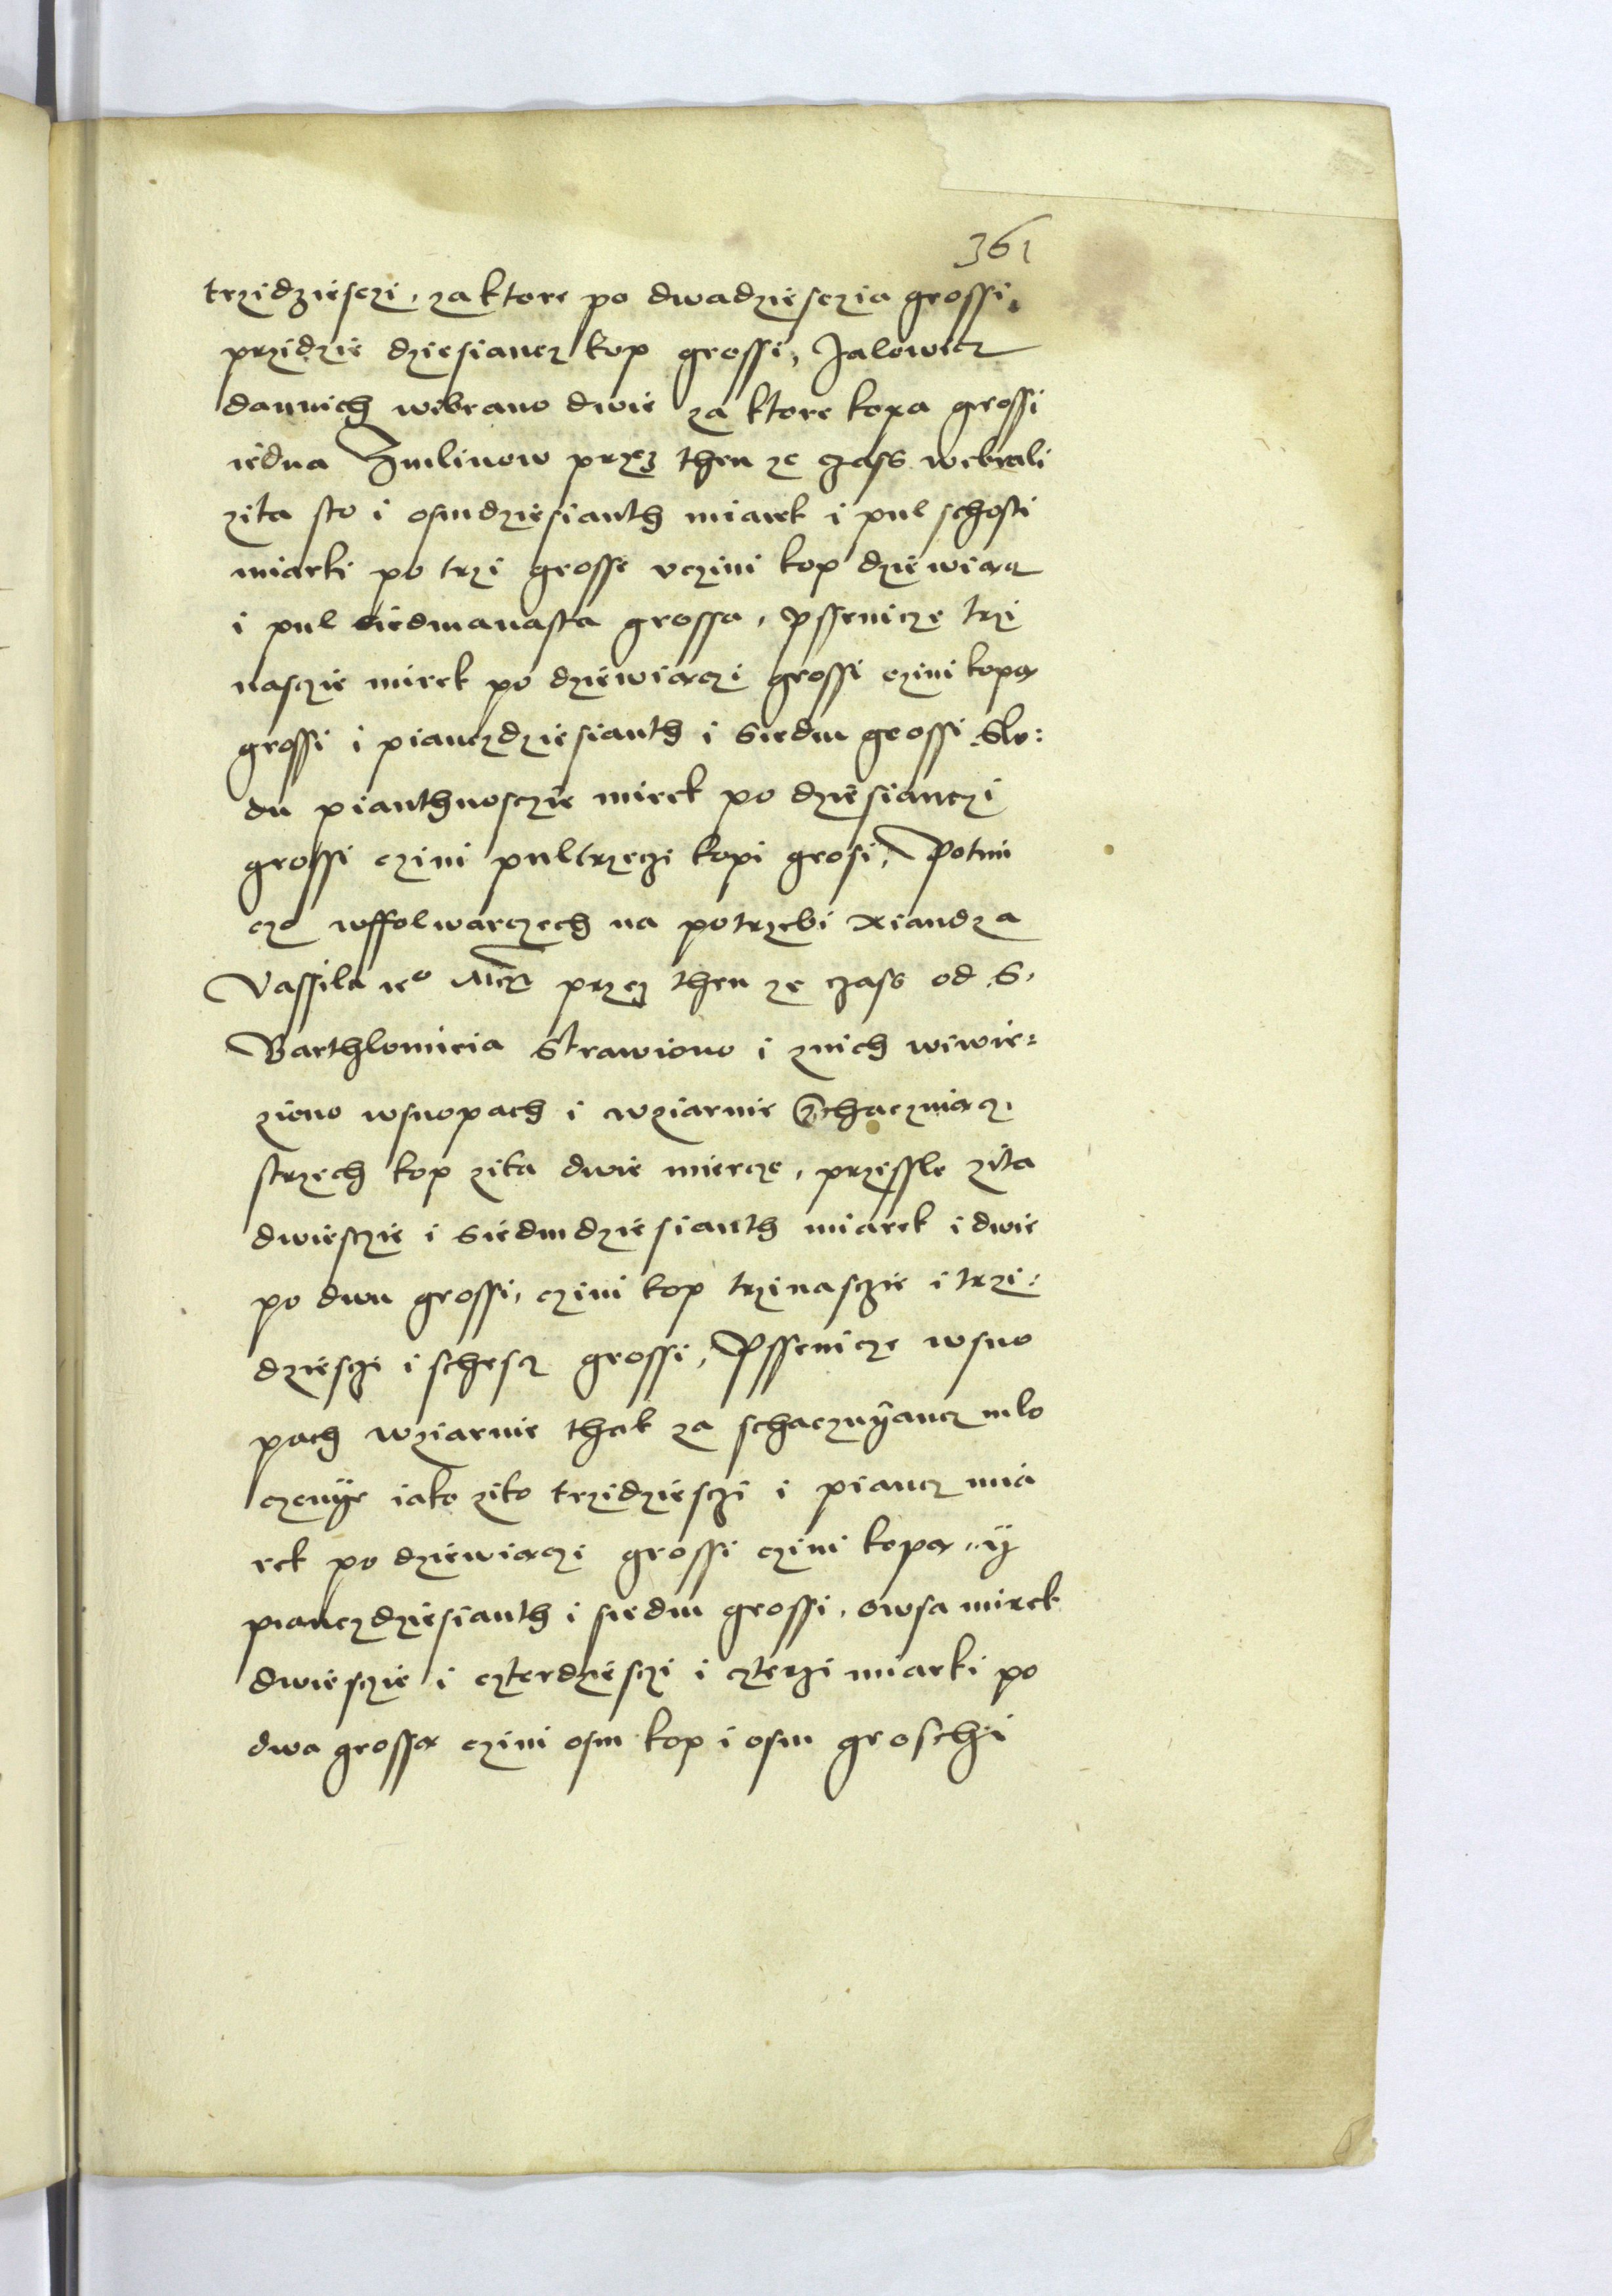 361
trzidziesczi, za ktore po dwadziesczia grossi,
przidzie dziesiancz kop grossi, Jalowicz
dannich wibrano dwie za ktore kopa grossi
iedna Zmlinow przez then ze czass webrali
zita sto i osmdziesianth miarek i pul schosti
miarki po trzi grosse vczini kop dziewiacz
i pul siedmanasta grossa, pssenicze trzi
nasczie mirek po dziewiaczi grossi czini kopa
grossi i pianczdziesianth i siedm grossi Slo:
du pianthnosczie mirek po dziesianczi
grossi czini pultrzeczi kopi grosi, Potim
czo wffolwarczech na potrzebi xiandza
Vassila ie° Mczi przez then ze czass od S.
Barthlomieia Strawiono i znich wiwie:
ziono wsnopach i wziarnie Schaczniacz
strzech kop zita dwie miercze, przessle zita
dwiesczie i siedmdziesianth miarek i dwie
po dwu grossi, czini kop trzinasczie i trzi:
dziesczi i schescz grossi, Pssenicze wsno
pach wziarnie thak za schacznÿancz mlo
czenÿe iako zito trzidziesczi i piancz mia
rek po dziewiaczi grossi czini kopa ÿ
pianczdziesianth i siedm grossi, owsa mirek
dwiesczie i czterdziesczi i czterzi miarki po
dwa grossa czini osm kop i osm groschi